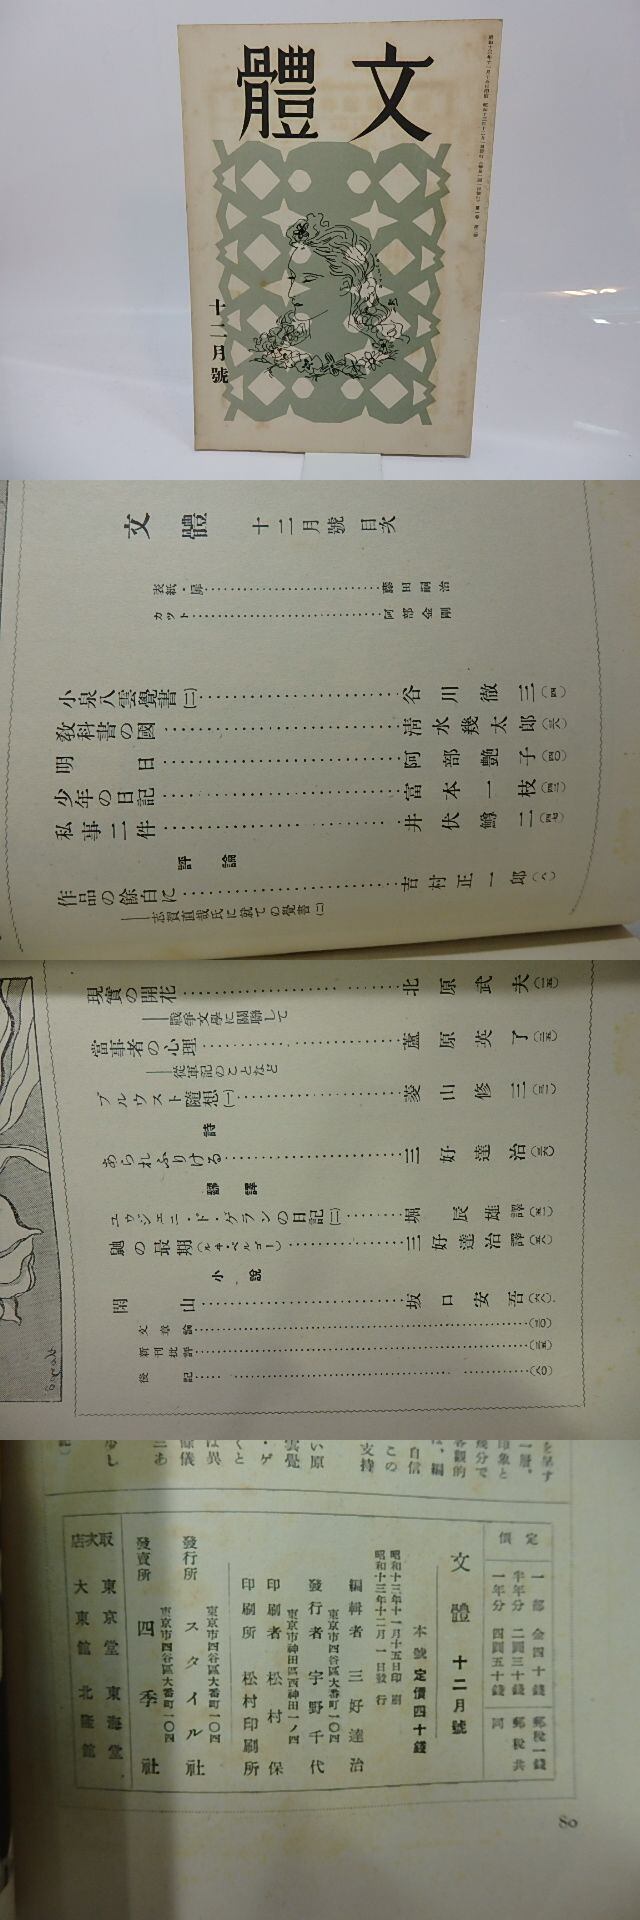 文體
十二月號
文體 十二月號 目次
表紙・扉 藤田嗣治
カット 阿部金剛
小泉八雲覺書(二) 谷川徹三(四)
敎科書の國 淸水幾太郎(六)
明日 阿部艷子(四〇)
少年の日記 富本一枝(四三)
私事二件 井伏鱒二(四七)
評論
作品の餘白に 吉村正一郎(八)
――志賀直哉氏に就ての覺書(二)
現實の開花 北原武夫(一五)
――戰爭文學に關聯して
當事者の心理 蘆原英了(二五)
――從軍記のことなど
プルウスト隨想(一) 菱山修三(三一)
詩
あられふりける 三好達治(三六)
飜譯
ユウジェニ・ド・ゲランの日記(二) 堀辰雄譯(五一)
鼬の最期(ルヰ・ペルゴー) 三好達治譯(五六)
小說
閑山 坂口安吾(六八)
文章論
新刊批評(三五)
後記(八〇)
定價
一部 金四十錢 郵稅一錢
半年分 二圓三十錢 郵稅共
一年分 四圓五十錢 同
文體 十二月號
本號定價四十錢
昭和十三年十一月十五日印刷
昭和十三年十二月一日發行
編輯者 三好達治
東京市四谷區大番町一〇四
發行者 宇野千代
東京市神田區西神田一ノ四
印刷者 松村保
印刷所 松村印刷所
東京市四谷區大番町一〇四
發行所 スタイル社
東京市四谷區大番町一〇四
發賣所 四季社
取次店
東京堂 東海堂
大東館 北隆館
80